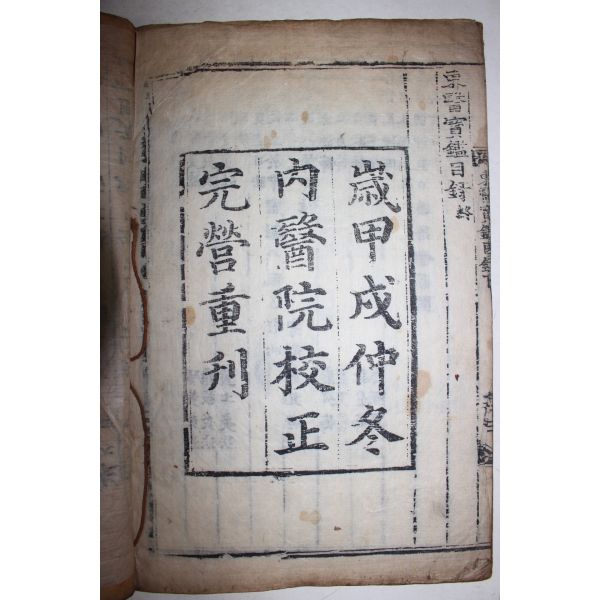 東醫寶鑑目錄終
歲甲戌仲冬
內醫院校正
完營重刊